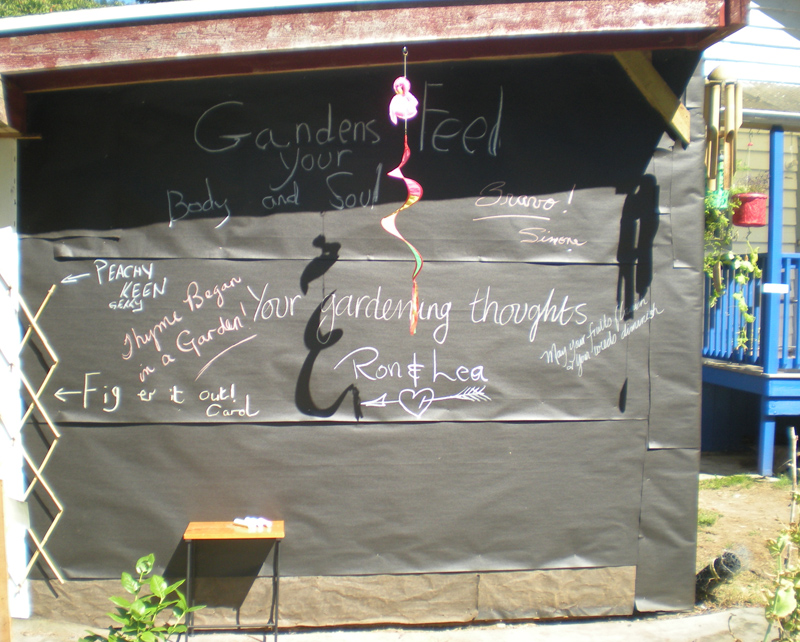 Gardens Feed
your
Body and Soul
Bravo!
Simone
← PEACHY
KEEN
GERRY
Thyme Began
in a Garden!
Your gardening thoughts
May your fruits
& your weeds diminish
Ron & Lea
← Fig er it out!
Carol